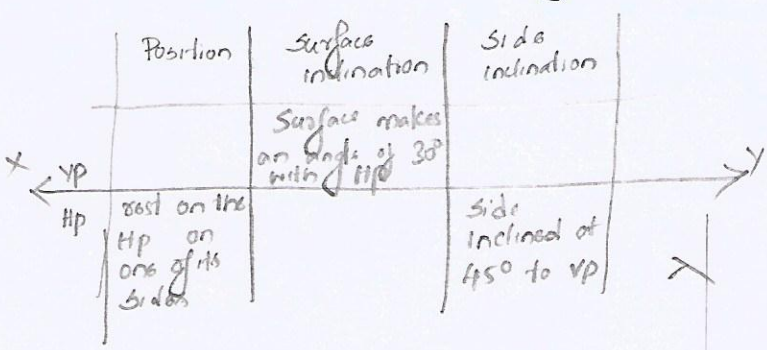 Position
Surface
inclination
Side
inclination
Surface makes
an angle of 30°
with Hp
X
VP
Y
Hp
rest on the
Hp on
one of its
sides
Side
inclined at
45° to VP